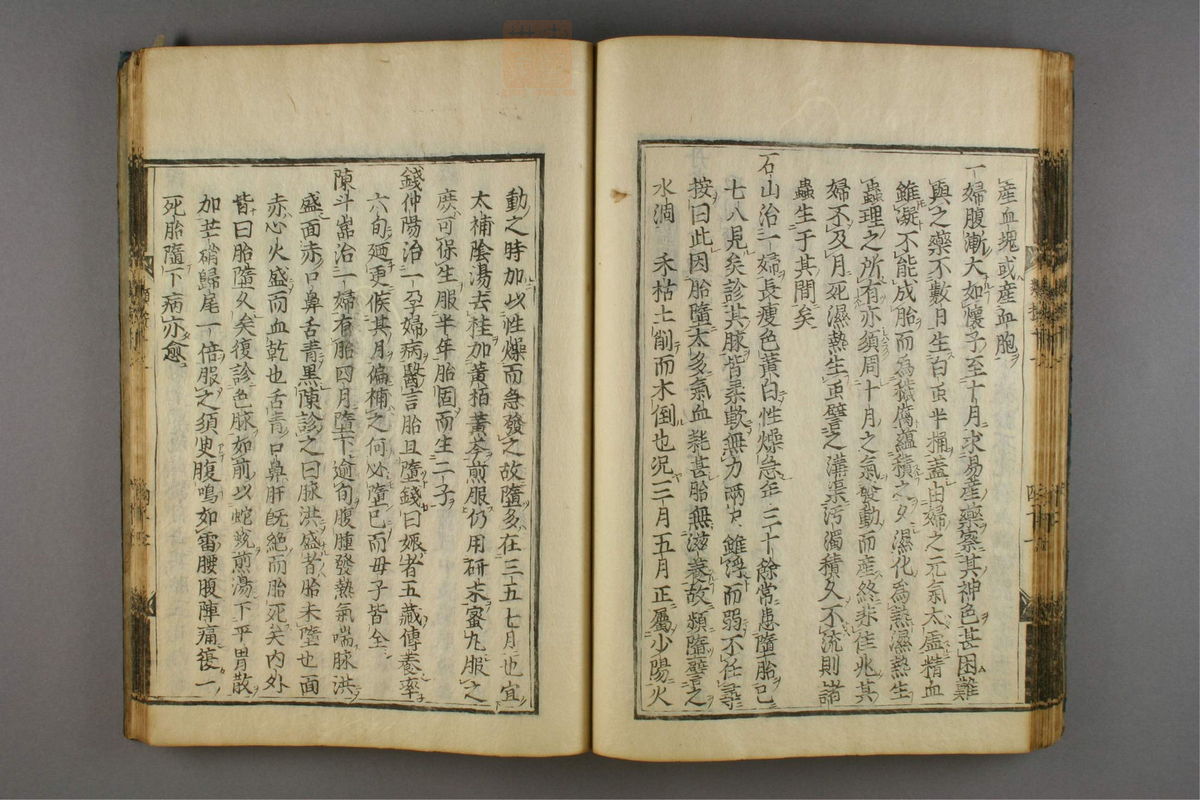 產血塊或產血胞
一婦腹漸大如懷子至十月求易產藥察其神色甚困難
與之藥不數日生白虫半桶蓋由婦之元氣太虛精血
雖凝不能成胎而為穢腐蘊積之久濕化為熱濕熱生
蟲理之所有亦須周十月之氣發動而產終非佳兆其
婦不及月死濕熱生虫譬之溝渠污濁積久不流則諸
蟲生于其間矣
石山治一婦長瘦色黃白性燥急年三十餘常患墮胎已
七八見矣診其脉皆柔軟無力兩寸雖浮而弱不任尋
按曰此因胎墮太多氣血耗甚胎無滋養故頻墮譬之
水涸禾枯土削而木倒也況三月五月正屬少陽火
動之時加以性燥而急發之故墮多在三五七月也宜
太補陰湯去桂加黃栢黃芩煎服仍用研末蜜丸服之
庶可保生服半年胎固而生二子
錢仲陽治一孕婦病醫言胎且墮錢曰娠者五藏傳養率
六旬廼更候其月偏補之何必墮已而母子皆全
陳斗嵓治一婦有胎四月墮下逾旬腹腫發熱氣喘脉洪
盛面赤口鼻舌青黑陳診之曰脉洪盛者胎未墮也面
赤心火盛而血乾也舌青口鼻肝既絕而胎死矣內外
皆曰胎墮久矣復診色脉如前以蛇蛻煎湯下平胃散
加芒硝歸尾一倍服之須臾腹鳴如雷腰腹陣痛復一
死胎墮下病亦愈